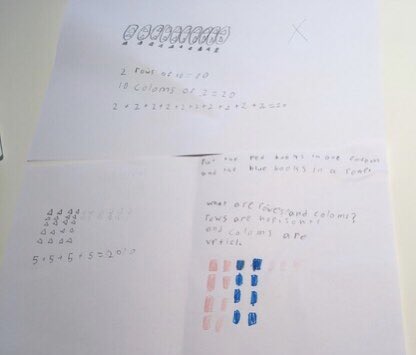 2 rows of 10=20
10 coloms of 2=20
2+2+2+2+2+2+2+2+2+2=20
Put the red books in one
and the blue books in a
5+5+5+5=20
what are rows and coloms?
rows are horisontl
and coloms are
verticl